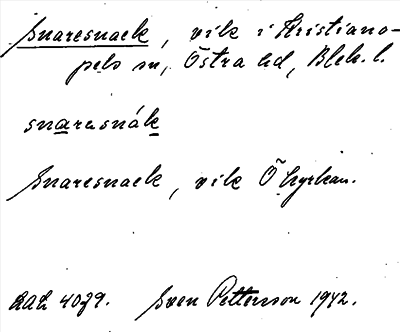 Snaresnack, vik i Kristiano-
pels sn, Östra hd, Blek. l.
snaresnák
Snaresnack, vik Ö
4079. Sven Pettersson 1942.